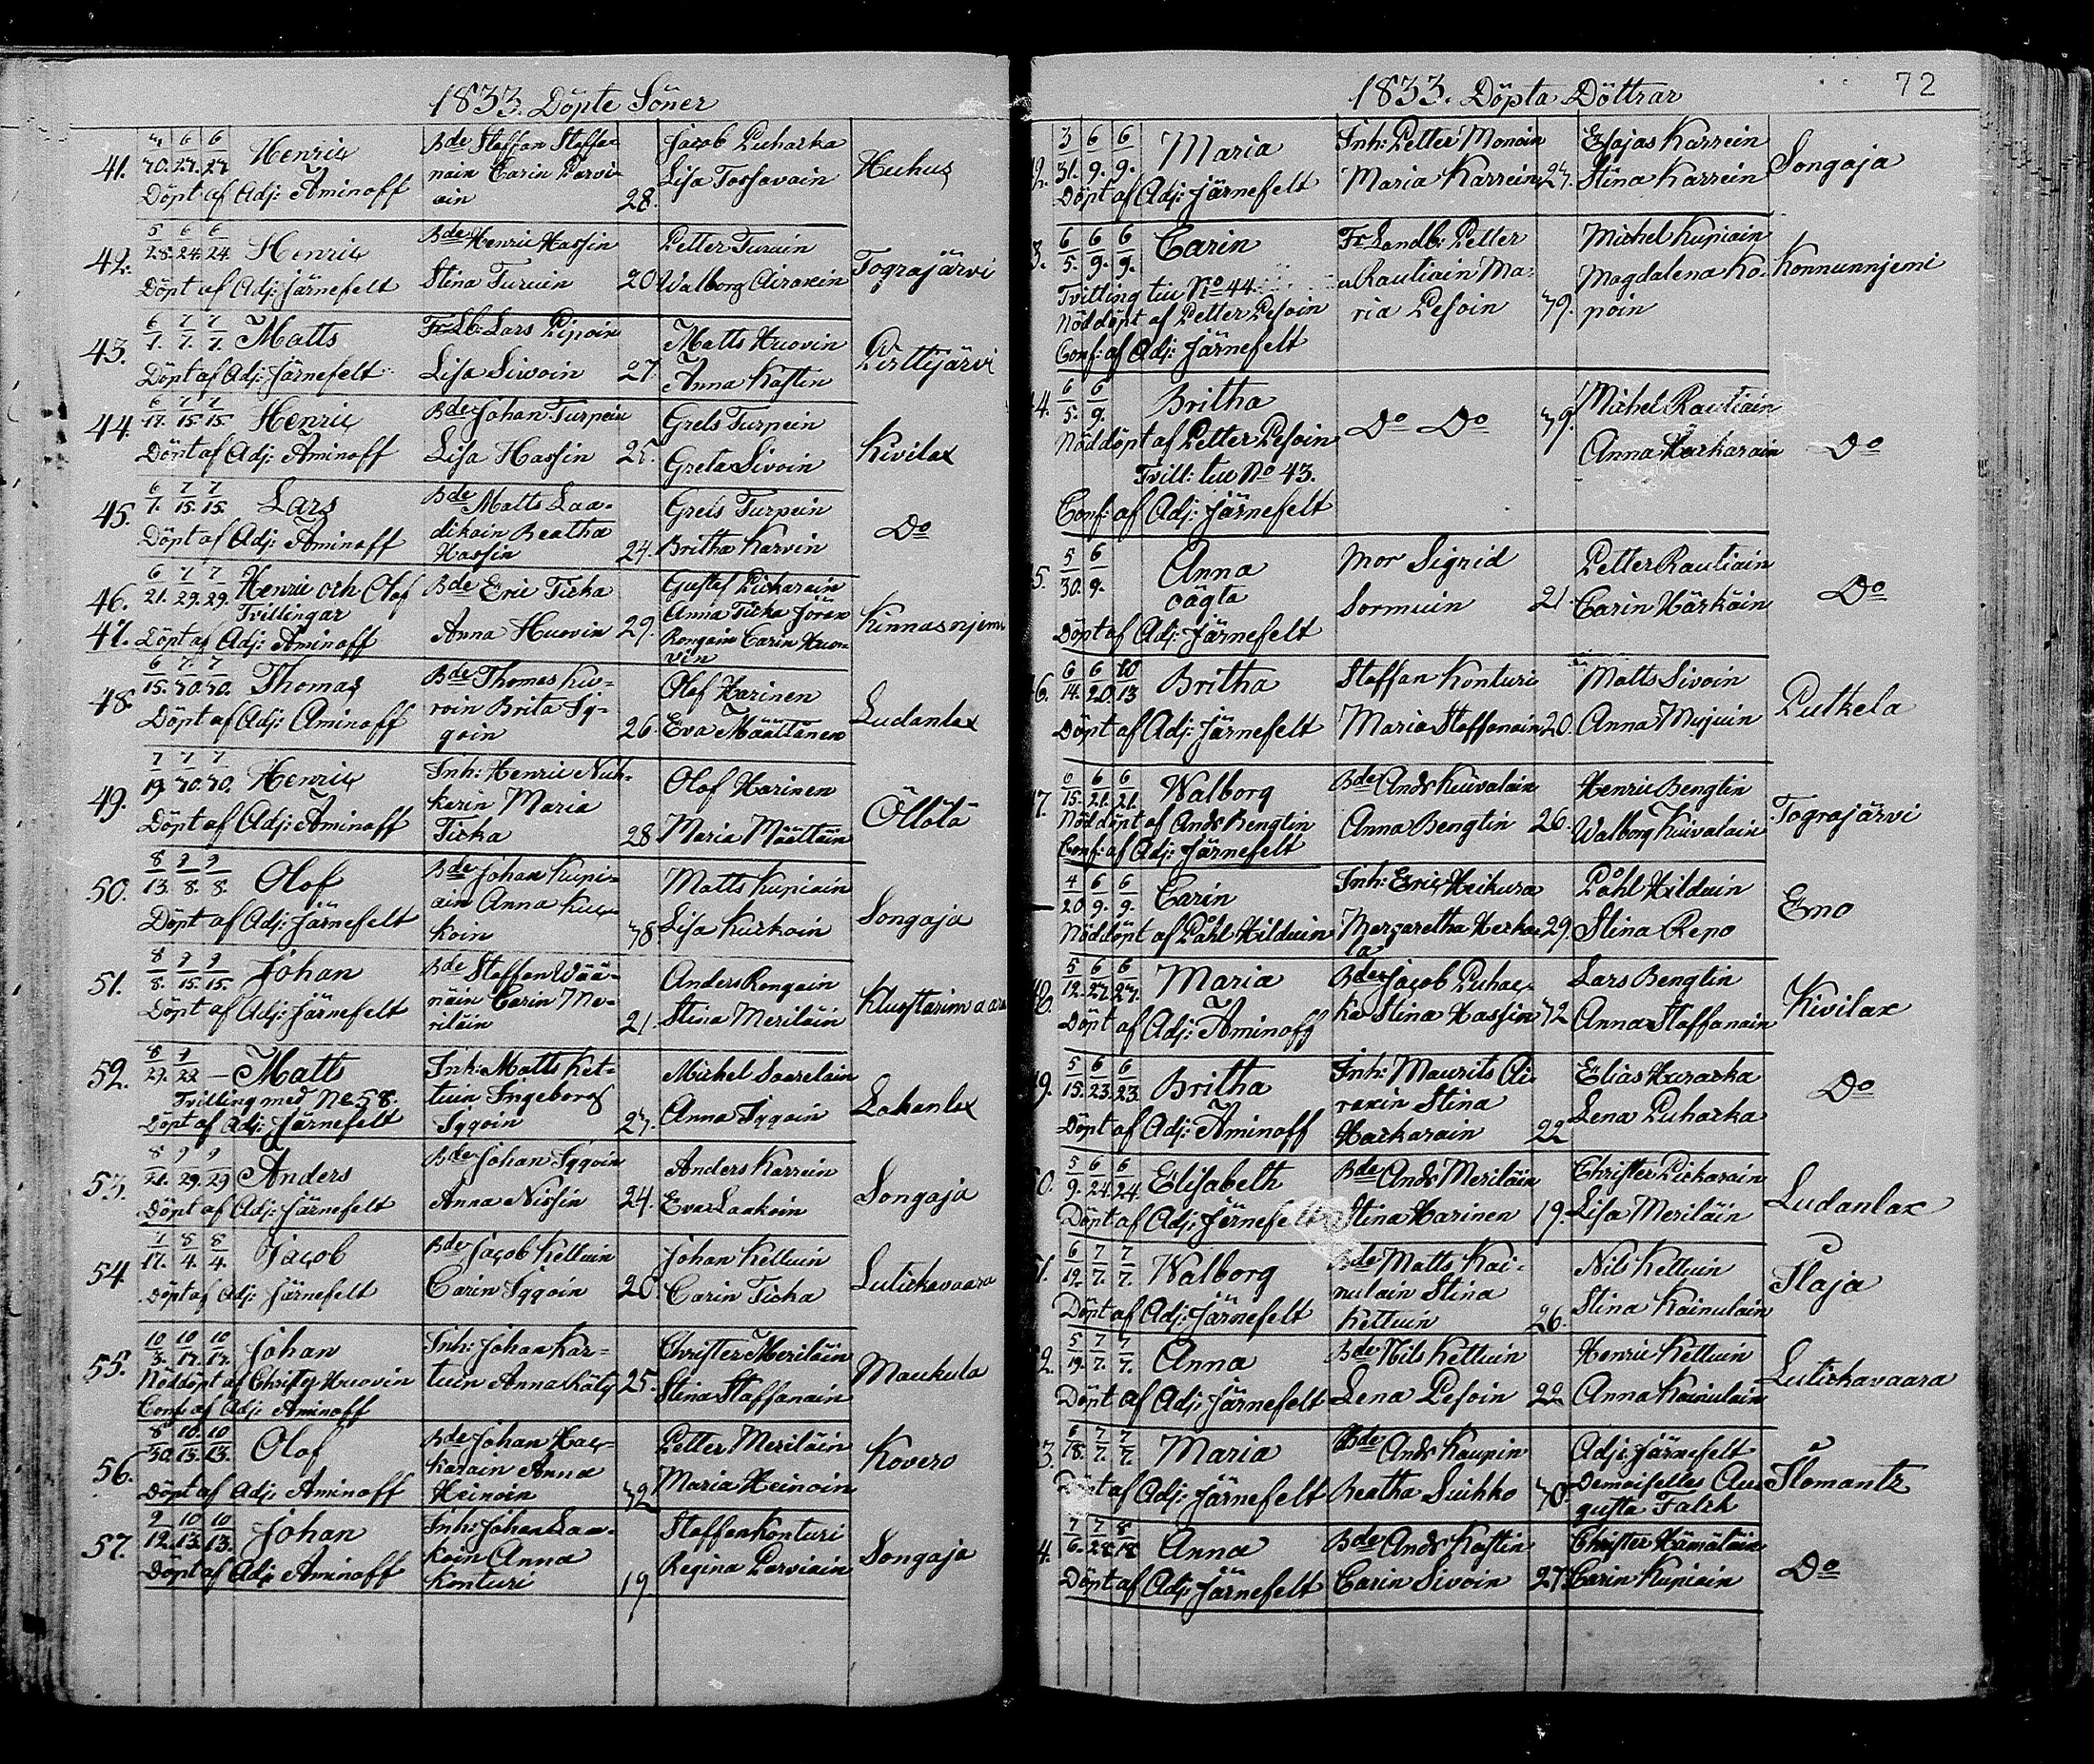 1833. Döpte Söner
41. Henric Bde Staffan Staffa- Jacob Puharka Huhus
nain Carin Parvi- Lisa Tossavain
Döpt af Adj: Aminoff ain 28.
42. 5/28. 6/24. 6/24. Henric Bde Henric Hassin Petter Turuin Tograjärvi
Döpt af Adj: Järnefelt Stina Turuin 20 Walborg Airaxin
43. 6/7. 7/7. 7/7. Matts Lars Matts Huovin
Döpt af Adj: Järnefelt Lisa Sivoin 27. Anna Kostin
44. 6/17. 7/15. 7/15. Henric Bde Johan Turpein Grels Turpein Kivilax
Döpt af Adj: Aminoff Lisa Hassin 25. Greta Sivoin
45. 6/7. 7/15. 7/15. Lars Bde Matts Laa- Grels Turpein Do
Döpt af Adj: Aminoff dikain Beatha
Hassin 24. Britha Karvin
46. 6/21. 7/29. 7/29. Henric och Olof Bde Eric Ticka Gustaf Pickarain Kinnasnjemi
Tvillingar Anna Ticka Jöran
47. Döpt af Adj: Aminoff Anna Huovin 29. Rongain Carin Huo-
vin
48. 6/15. 7/30. 7/30. Thomas Bde Thomas Ku- Olof Harinen Ludanlax
Döpt af Adj: Aminoff roin Brita Ig-
goin 26. Eva Määttänen
49. 7/19. 7/30. 7/30. Henric Inh: Henric Nuk- Olof Harinen Öllölä
Döpt af Adj: Aminoff karin Maria
Ticka 28 Maria Määttäin
50. 8/13. 9/8. 9/8. Olof Bde Johan Kupi- Matts Kupiain Songaja
Döpt af Adj: Järnefelt ain Anna Kur-
koin 38. Lisa Kurkoin
51. 8/8. 9/15. 9/15. Johan Bde Staffan Wää- Anders Rongain Klusstarimaara
Döpt af Adj: Järnefelt näin Carin Me-
riläin 21. Stina Meriläin
52. Matts Inh: Matts Ket- Michel Saarelain Lahanlax
Tvilling med No 58. tuin Ingeborg
Döpt af Adj: Järnefelt Iggoin 27. Anna Iggoin
53. 8/21. 9/29. 9/29 Anders Bde Johan Iggoin Anders Karrein Songaja
Döpt af Adj: Järnefelt Anna Nissin 24. Eva Laakoin
54 7/17. 8/4. 8/4. Jacob Bde Jacob Kettuin Johan Kettuin Lutickavaara
Döpt af Adj: Järnefelt Carin Iggoin 20 Carin Ticka
55. 10/3. 10/17. 10/17. Johan Inh: Johan Kar- Christer Meriläin Maukula
Nöddöpt af Christer Huovin tuin Anna Räty 25. Stina Staffanain
Conf: af Adj: Aminoff
56. 8/30. 10/13. 10/13. Olof Bde Johan Har- Petter Meriläin Kovero
karain Anna
Döpt af Adj: Aminoff Heinoin 32 Maria Heinoin
57. 9/12. 10/13. 10/13. Johan Inh: Johan Laa- Staffan Konturi Songaja
koin Anna
Döpt af Adj: Aminoff Konturi 19. Regina Parviain
72
1833. Döpta Döttrar
2. 3/31. 6/9. 6/9. Maria Inh: Petter Monoin Esajas Karrein Songaja
Döpt af Adj: Järnefelt Maria Karrein 27. Stina Karrein
3. 6/5. 6/9. 6/9. Carin Fr Landb: Petter Michel Kupiain Konnunnjemi
Tvilling till No 44. Rautiain Ma- Magdalena Ko-
Nöddöpt af Petter Pesoin ria Pesoin 39. poin
Conf: af Adj: Järnefelt
4. 6/5. 6/9. Britha Do Do 39. Michel Rautiain Do
Nöddöpt af Petter Pesoin Anna Harkarain
Tvill: till No 43.
Conf: af Adj: Järnefelt
5. 5/30. 6/9. Anna Mor Sigrid Petter Rautiain Do
oägta Sormuin 21. Carin Härkäin
Döpt af Adj: Järnefelt
6. 6/14. 6/20. 10/13 Britha Staffan Konturi Matts Sivoin Putkela
Döpt af Adj: Järnefelt Maria Staffanain 20. Anna Mujuin
7. 6/15. 6/21. 6/21. Walborg Bde Ands Kuivalain Henric Bengtin Tograjärvi
Nöddöpt af Ands Bengtin Anna Bengtin 26. Walborg Kuivalain
Conf: af Adj: Järnefelt
4/20 6/9. 6/9. Carin Inh: Eric Heikura Påhl Hilduin Eno
Nöddöpt af Påhl Hilduin Margaretha Herka- 29. Stina Repo
la
8. 5/12. 6/27. 6/27. Maria Bde Jacob Puhar- Lars Bengtin Kivilax
Döpt af Adj: Aminoff ka Stina Hassin 32 Anna Staffanain
9. 5/15. 6/23. 6/23. Britha Inh: Maurits Ai- Elias Hurarka Do
raxin Stina Lena Puharka
Döpt af Adj: Aminoff Harkarain 22
0. 5/9. 6/24. 6/24. Elisabeth Bde Ands Meriläin Christer Pickarain Ludanlax
Döpt af Adj: Järnefelt Stina Harinen 19. Lisa Meriläin
1. 6/19. 7/7. 7/7. Walborg Bde Matts Kai- Nils Kettuin Ilaja
nulain Stina
Döpt af Adj: Järnefelt Kettuin 26. Stina Kainulain
2. 5/19. 7/7. 7/7. Anna Bde Nils Kettuin Henric Kettuin Lutickavaara
Döpt af Adj: Järnefelt Lena Pesoin 22 Anna Kainulain
3. 6/18. 7/7. 7/7. Maria Bde Ands Kaupin Adj: Järnefelt Ilomantz
Döpt af Adj: Järnefelt Beatha Suihko 30. Demoiselles Au-
gusta Falck
4. 7/6. 7/28 8/18 Anna Bde Ands Kostin Christer Hämäläin Do
Döpt af Adj: Järnefelt Carin Sivoin 27. Carin Kupiain